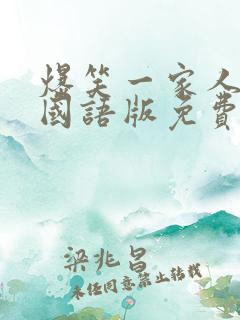 爆笑一家人
國語版免費
梁兆昌
未任同意禁止转载